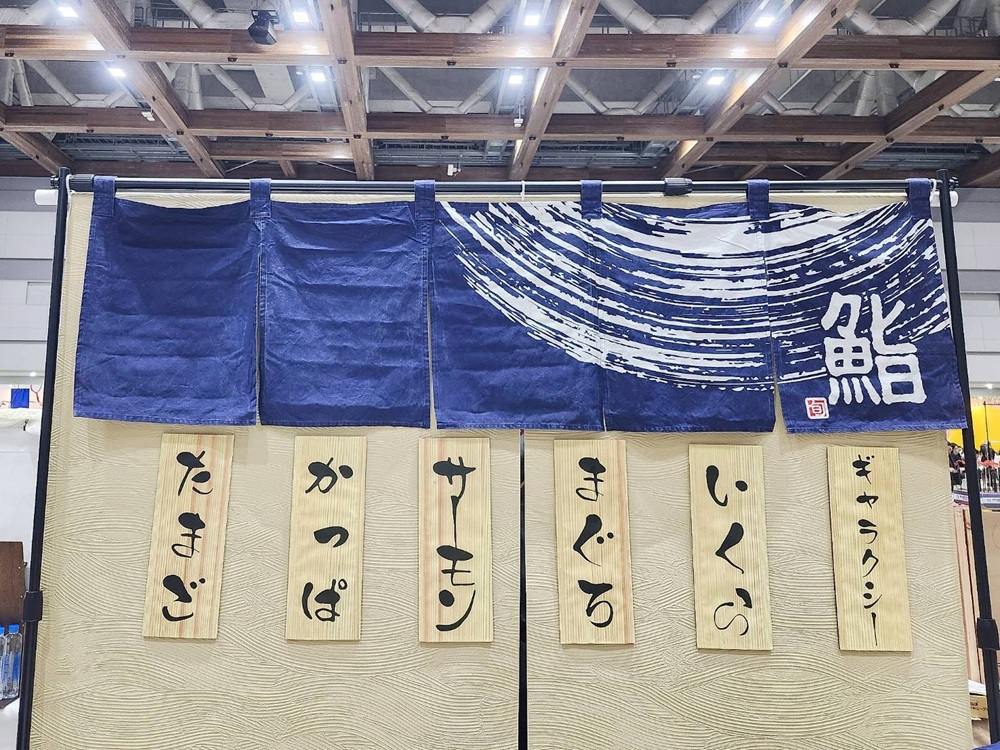 鮨
旬
ギャラクシー
いくら
まぐろ
サーモン
かっぱ
たまご